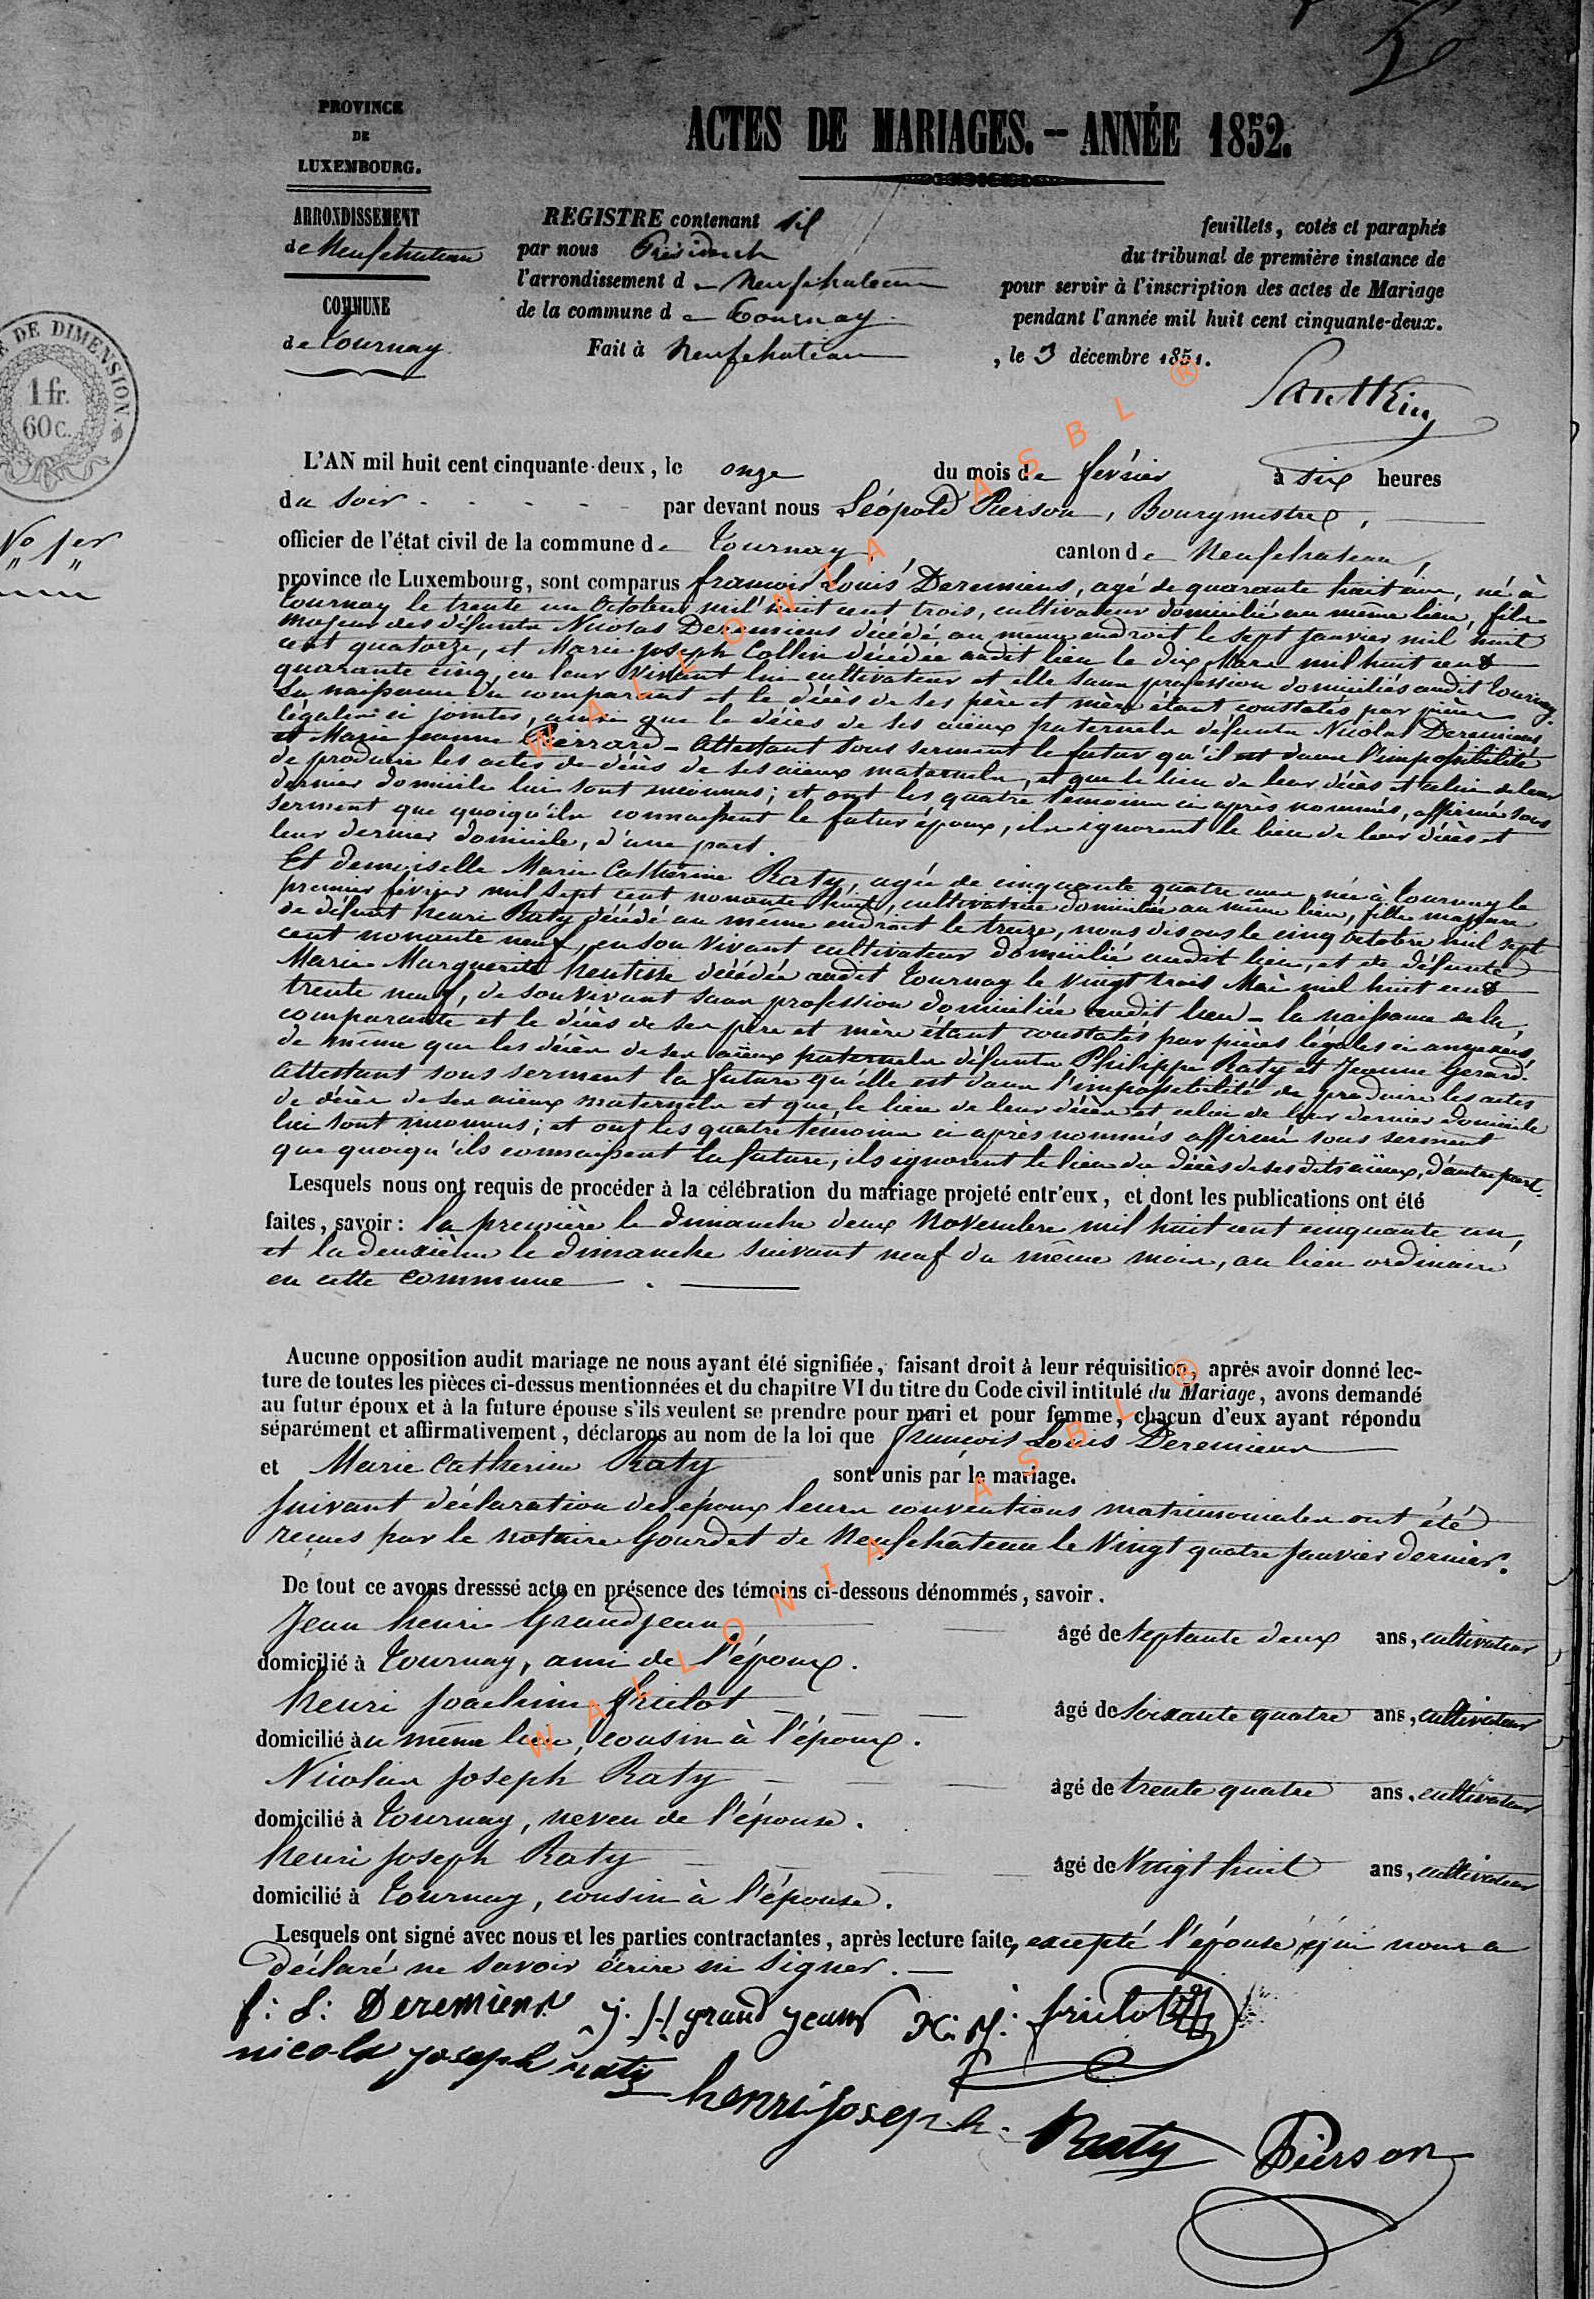 PROVINCE
DE
LUXEMBOURG.
ARRONDISSEMENT
de Neufchateau
COMMUNE
de Tournay
ACTES DE MARIAGES. — ANNÉE 1852.
REGISTRE contenant six feuillets, cotés et paraphés
par nous Président du tribunal de première instance de
l'arrondissement de Neufchateau pour servir à l'inscription des actes de Mariage
de la commune de Tournay pendant l'année mil huit cent cinquante-deux.
Fait à Neufchateau, le 3 décembre 1851.
DE DIMENSION.
1 fr.
60 c.
No 1er
L'AN mil huit cent cinquante-deux, le onze du mois de février à six heures
du soir par devant nous Léopold Pierson, Bourgmestre,
officier de l'état civil de la commune de Tournay, canton de Neufchateau,
province de Luxembourg, sont comparus françois Louis Deremiens, agé de quarante huit ans, né à
Tournay le trente un Octobre mil huit cent trois, cultivateur domicilié au même lieu, fils
majeur des défunts Nicolas Deremiens décédé au même endroit le sept Janvier mil huit
cent quatorze, et Marie Joseph Collin décédée audit lieu le dix Mars mil huit cent
quarante cinq, en leur vivant lui cultivateur et elle sans profession domiciliés audit Tournay.
La naissance du comparant et le décès de ses père et mère étant constatés par pièces
légales ci jointes, ainsi que le décès de ses aïeux paternels défunts Nicolas Deremiens
et Marie Jeanne Pierrard - Attestant sous serment le futur qu'il est dans l'impossibilité
de produire les actes de décès de ses aïeux maternels, et que le lieu de leur décès et celui de leur
dernier domicile lui sont inconnus; et ont les quatre témoins ci après nommés, affirmé sous
serment que quoiqu'ils connaissent le futur époux, ils ignorent le lieu de leur décès et
leur dernier domicile, d'une part.
Et demoiselle Marie Catherine Raty, agée de cinquante quatre ans, née à Tournay le
premier février mil sept cent nonante huit, cultivatrice domiciliée au même lieu, fille majeure
de défunt henri Raty décédé au même endroit le treize, nous disons le cinq octobre mil sept
cent nonante neuf, en son vivant cultivateur domicilié audit lieu, et de défunte
Marie Marguerite décédée audit Tournay le vingt trois Mai mil huit cent
trente neuf, de son vivant sans profession domiciliée audit lieu - la naissance de la
comparante et le décès de ses père et mère étant constatés par pièces légales ci annexées,
de même que les décès de ses aïeux paternels défunts Philippe Raty et Jeanne Gerard.
Attestant sous serment la future qu'elle est dans l'impossibilité de produire les actes
de décès de ses aïeux maternels et que le lieu de leur décès et celui de leur dernier domicile
lui sont inconnus; et ont les quatre témoins ci après nommés affirmé sous serment
que quoiqu'ils connaissent la future, ils ignorent le lieu du décès de ses dits aïeux, d'autre part.
Lesquels nous ont requis de procéder à la célébration du mariage projeté entr'eux, et dont les publications ont été
faites, savoir: la première le dimanche deux Novembre mil huit cent cinquante un,
et la deuxième le dimanche suivant neuf du même mois, au lieu ordinaire
en cette commune.
Aucune opposition audit mariage ne nous ayant été signifiée, faisant droit à leur réquisition, après avoir donné lec-
ture de toutes les pièces ci-dessus mentionnées et du chapitre VI du titre du Code civil intitulé du Mariage, avons demandé
au futur époux et à la future épouse s'ils veulent se prendre pour mari et pour femme, chacun d'eux ayant répondu
séparément et affirmativement, déclarons au nom de la loi que françois Louis Deremiens
et Marie Catherine Raty sont unis par le mariage.
Suivant déclaration des époux leurs conventions matrimoniales ont été
reçues par le notaire Gourdet de Neufchâteau le Vingt quatre Janvier dernier.
De tout ce avons dresssé acte en présence des témoins ci-dessous dénommés, savoir.
Jean henri Grandjean, âgé de septante deux ans, cultivateur
domicilié à Tournay, ami de l'époux.
henri Joachim friclot âgé de soixante quatre ans, cultivateur
domicilié au même lieu, cousin à l'époux.
Nicolas Joseph Raty âgé de trente quatre ans, cultivateur
domicilié à Tournay, neveu de l'épouse.
henri Joseph Raty âgé de Vingt huit ans, cultivateur
domicilié à Tournay, cousin à l'épouse.
Lesquels ont signé avec nous et les parties contractantes, après lecture faite, excepté l'épouse qui nous a
déclaré ne savoir écrire ni signer.
f: L: Deremiens j. H grand jean H. J. friclot
nicolas joseph raty
henri joseph Raty Pierson
WALLONIA ASBL ®
WALLONIA ASBL ®